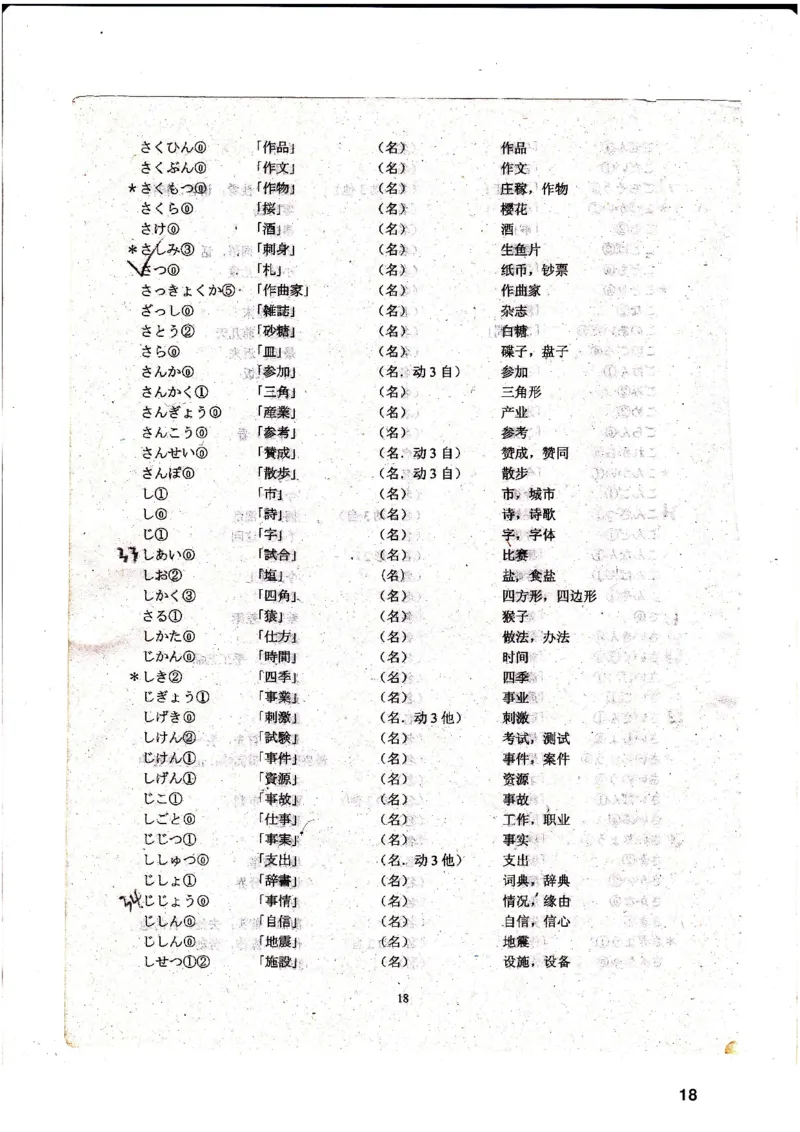 さくひん⓪ 「作品」 (名) 作品
さくぶん⓪ 「作文」 (名) 作文
*さくもつ⓪ 「作物」 (名) 庄稼，作物
さくら⓪ 「桜」 (名) 樱花
さけ⓪ 「酒」 (名) 酒
*さしみ③ 「刺身」 (名) 生鱼片
さつ⓪ 「札」 (名) 纸币，钞票
さっきょくか⑤ 「作曲家」 (名) 作曲家
ざっし⓪ 「雑誌」 (名) 杂志
さとう② 「砂糖」 (名) 白糖
さら⓪ 「皿」 (名) 碟子，盘子
さんか⓪ 「参加」 (名．动3自) 参加
さんかく① 「三角」 (名) 三角形
さんぎょう⓪ 「産業」 (名) 产业
さんこう⓪ 「参考」 (名) 参考
さんせい⓪ 「賛成」 (名．动3自) 赞成，赞同
さんぽ⓪ 「散歩」 (名．动3自) 散步
し① 「市」 (名) 市，城市
し⓪ 「詩」 (名) 诗，诗歌
じ① 「字」 (名) 字，字体
33 しあい⓪ 「試合」 (名) 比赛
しお② 「塩」 (名) 盐，食盐
しかく③ 「四角」 (名) 四方形，四边形
さる① 「猿」 (名) 猴子
しかた⓪ 「仕方」 (名) 做法，办法
じかん⓪ 「時間」 (名) 时间
*しき② 「四季」 (名) 四季
じぎょう① 「事業」 (名) 事业
しげき⓪ 「刺激」 (名．动3他) 刺激
しけん② 「試験」 (名) 考试，测试
じけん① 「事件」 (名) 事件，案件
しげん① 「資源」 (名) 资源
じこ① 「事故」 (名) 事故
しごと⓪ 「仕事」 (名) 工作，职业
じじつ① 「事実」 (名) 事实
ししゅつ⓪ 「支出」 (名．动3他) 支出
じしょ① 「辞書」 (名) 词典，辞典
34 じじょう⓪ 「事情」 (名) 情况，缘由
じしん⓪ 「自信」 (名) 自信，信心
じしん⓪ 「地震」 (名) 地震
しせつ①② 「施設」 (名) 设施，设备
18
18